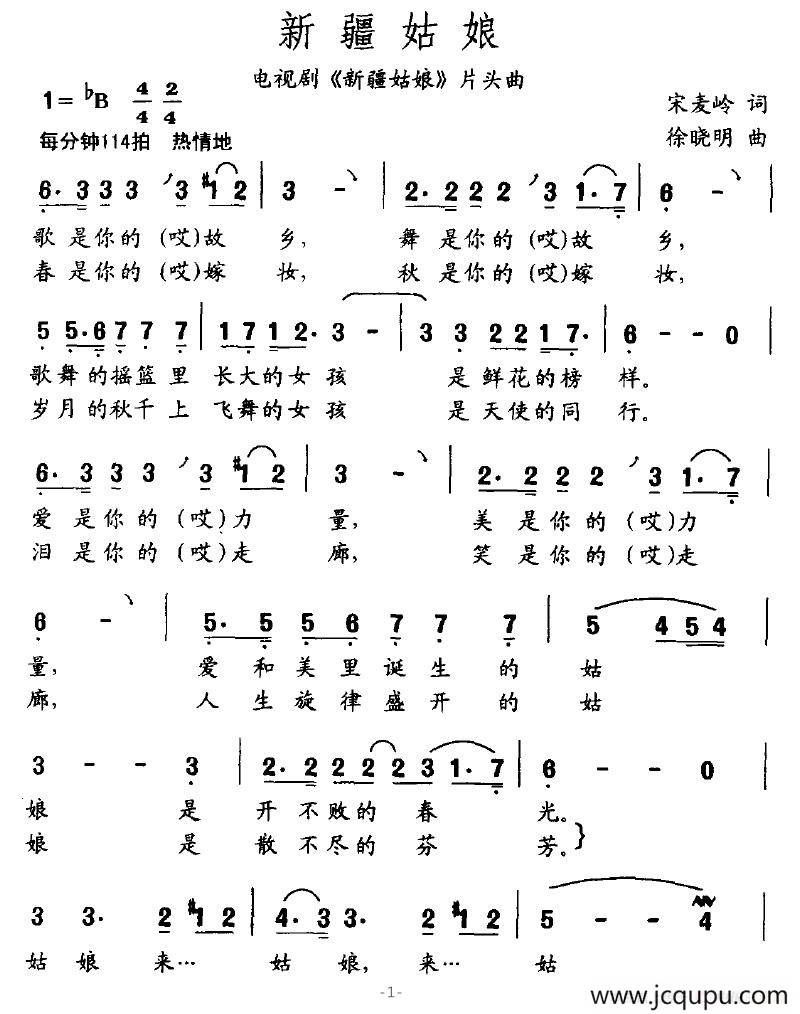 新疆姑娘
电视剧《新疆姑娘》片头曲
1=♭B 4/4 2/4
宋麦岭 词
每分钟114拍 热情地
徐晓明 曲
6· 3 3 3 3 #1 2 | 3 - | 2· 2 2 2 3 1· 7 | 6 - |
歌是你的(哎)故乡, 舞是你的(哎)故乡,
春是你的(哎)嫁妆, 秋是你的(哎)嫁妆,
5 5·6 7 7 7 | 1 7 1 2· 3 - | 3 3 2 2 1 7· | 6 - - 0 |
歌舞的摇篮里 长大的女孩 是鲜花的榜样。
岁月的秋千上 飞舞的女孩 是天使的同行。
6· 3 3 3 3 #1 2 | 3 - | 2· 2 2 2 3 1· 7 |
爱是你的(哎)力量, 美是你的(哎)力
泪是你的(哎)走廊, 笑是你的(哎)走
6 - | 5· 5 5 6 7 7 7 | 5 4 5 4 |
量, 爱和美里诞生的姑
廊, 人生旋律盛开的姑
3 - - 3 | 2· 2 2 2 2 3 1· 7 | 6 - - 0 |
娘 是开不败的春光。
娘 是散不尽的芬芳。}
3 3· 2 #1 2 | 4· 3 3· 2 #1 2 | 5 - - 4 |
姑娘来… 姑娘,来… 姑
-1-
www.jcqupu.com